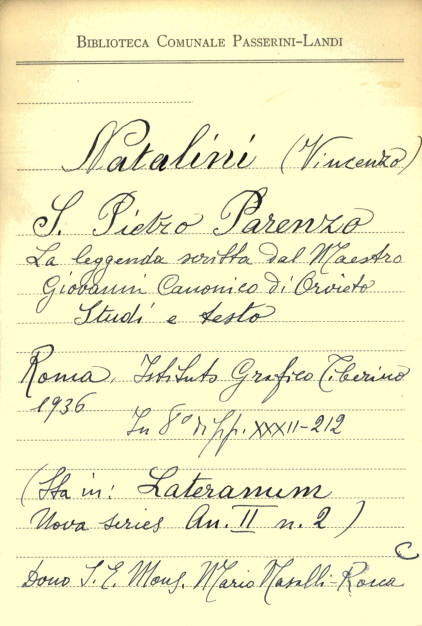 BIBLIOTECA COMUNALE PASSERINI-LANDI
Natalini (Vincenzo)
S. Pietro Parenzo
La leggenda scritta dal Maestro
Giovanni Canonico di Orvieto
Studi e testo
Roma, Istituto Grafico Tiberino
1936
In 8º di pp. XXXII-212
(Sta in: Lateranum
Nova series An. II n. 2)
C
Dono S. E. Mons. Mario Nasalli-Rocca